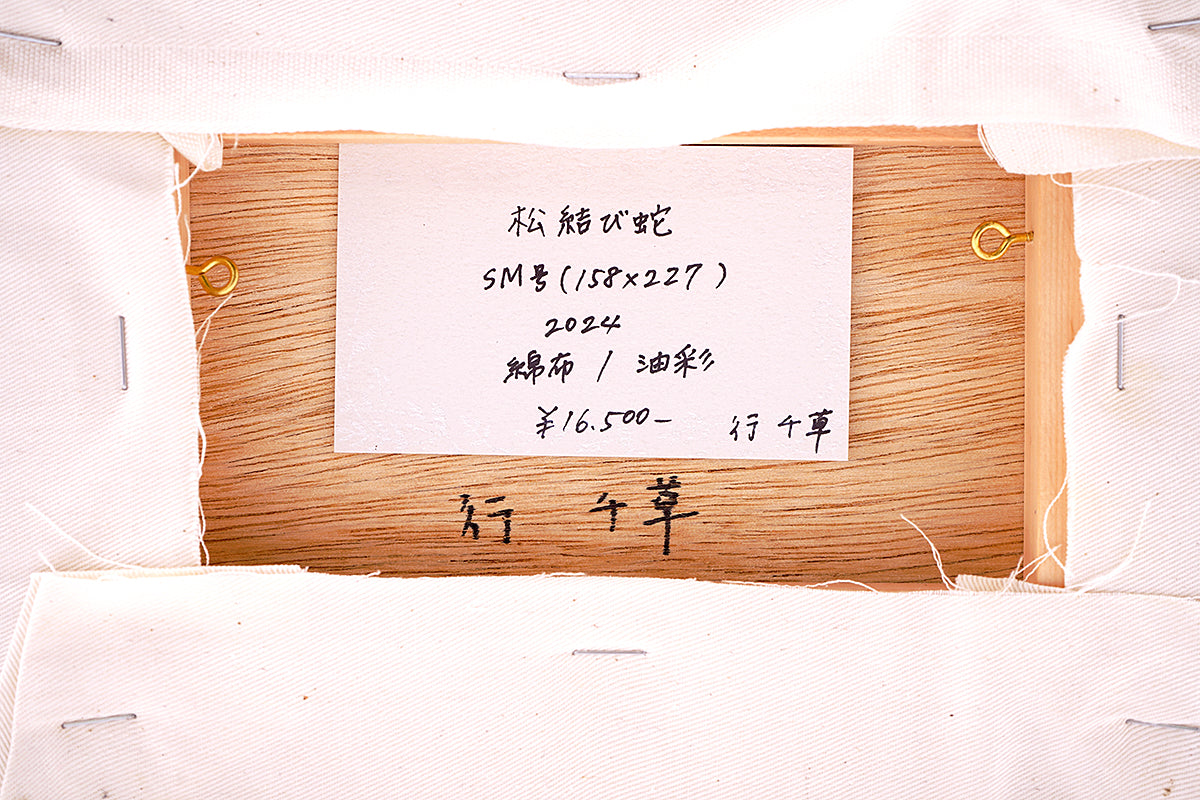 松結び蛇
SM号(158×227)
2024
綿布 / 油彩
¥16.500-
行 千草
行 千草